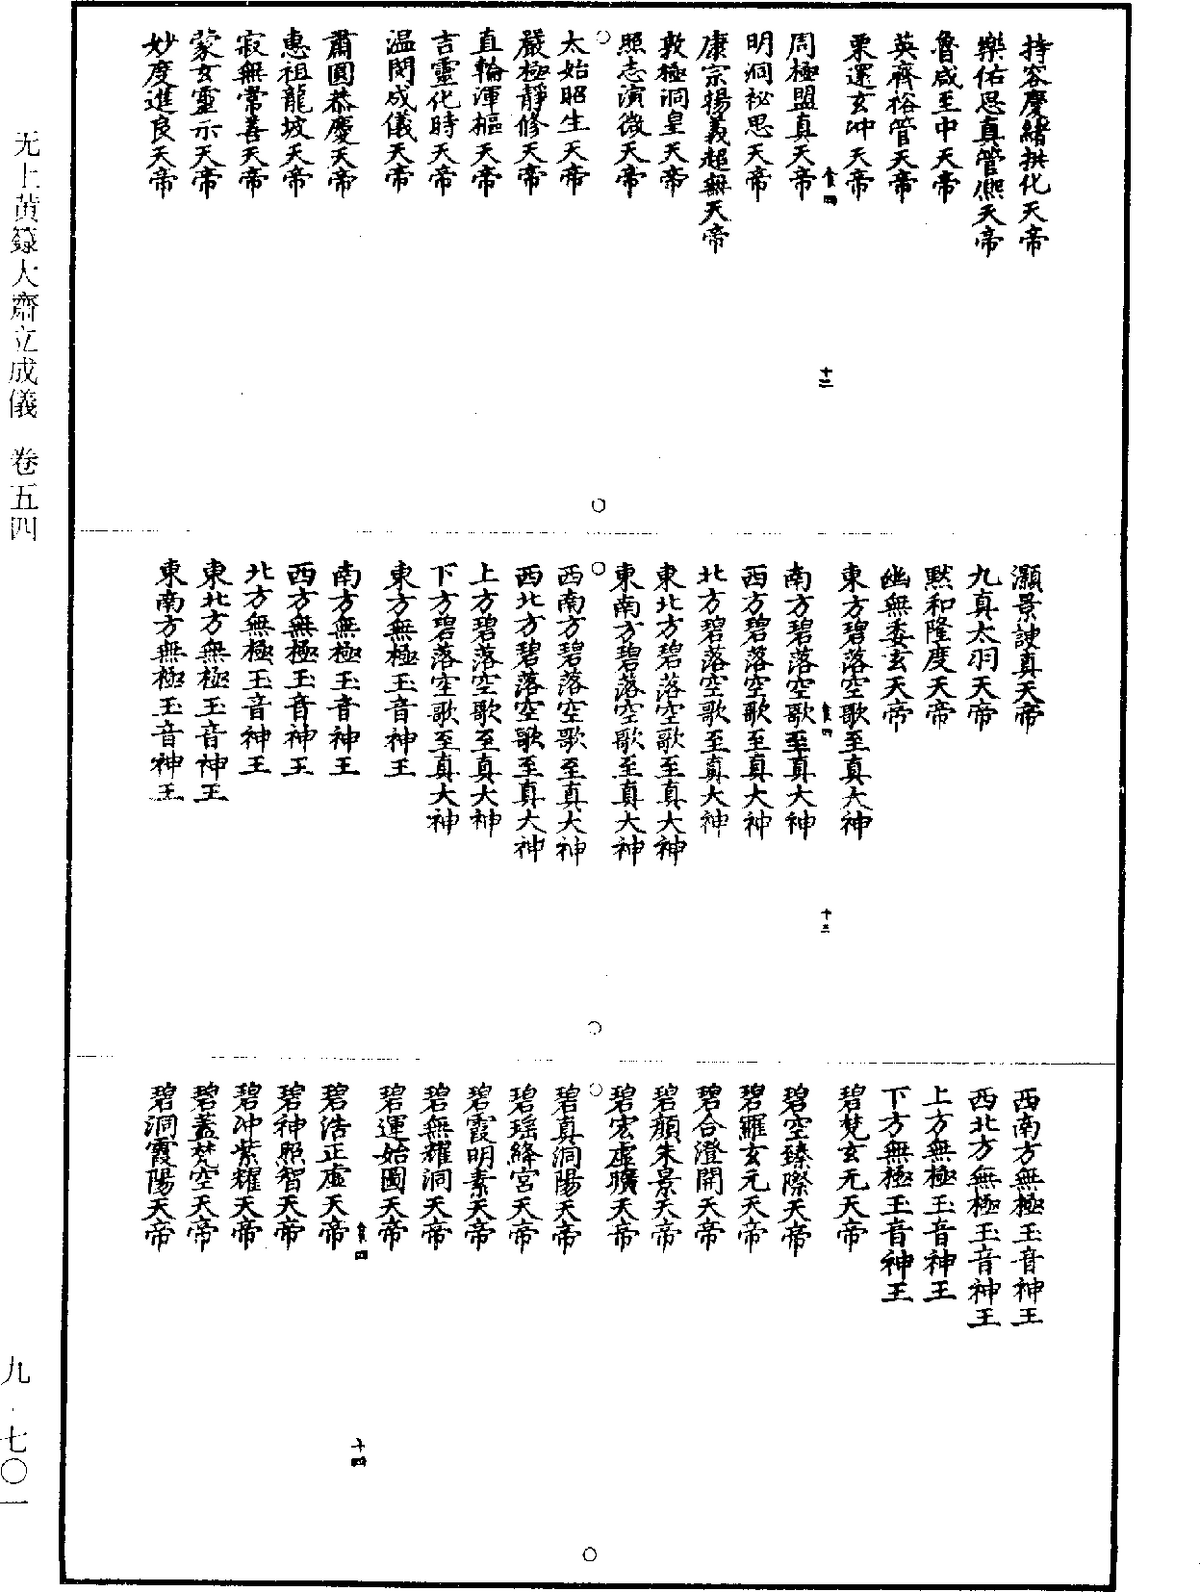 持容慶緒拱化天帝
樂佑恩真管熈天帝
魯咸至中天帝
英齊裕管天帝
栗還玄冲天帝
食四
十二
周極盟真天帝
明洞祕思天帝
康宗揚羲超無天帝
敦極洞皇天帝
照志演微天帝
太始昭生天帝
嚴極靜修天帝
直輪渾樞天帝
吉靈化時天帝
温閔成儀天帝
肅圓恭慶天帝
惠祖龍坡天帝
寂無常善天帝
蒙玄靈示天帝
妙度進良天帝
灝景諛真天帝
九真太羽天帝
默和隆度天帝
幽無委玄天帝
東方碧落空歌至真大神
食四
十三
南方碧落空歌至真大神
西方碧落空歌至真大神
北方碧落空歌至真大神
東北方碧落空歌至真大神
東南方碧落空歌至真大神
西南方碧落空歌至真大神
西北方碧落空歌至真大神
上方碧落空歌至真大神
下方碧落空歌至真大神
東方無極玉音神王
南方無極玉音神王
西方無極玉音神王
北方無極玉音神王
東北方無極玉音神王
東南方無極玉音神王
西南方無極玉音神王
西北方無極玉音神王
上方無極玉音神王
下方無極玉音神王
碧梵玄元天帝
碧空臻際天帝
碧羅玄元天帝
碧合澄開天帝
碧顏朱景天帝
碧宏虛曠天帝
碧真洞陽天帝
碧瑤絳宮天帝
碧霞明素天帝
碧無耀洞天帝
碧運始圖天帝
食四
十四
碧浩正虛天帝
碧神照智天帝
碧冲紫耀天帝
碧蓋梵空天帝
碧洞霞陽天帝
无上黄籙大齋立成儀 卷五四
九·七〇一